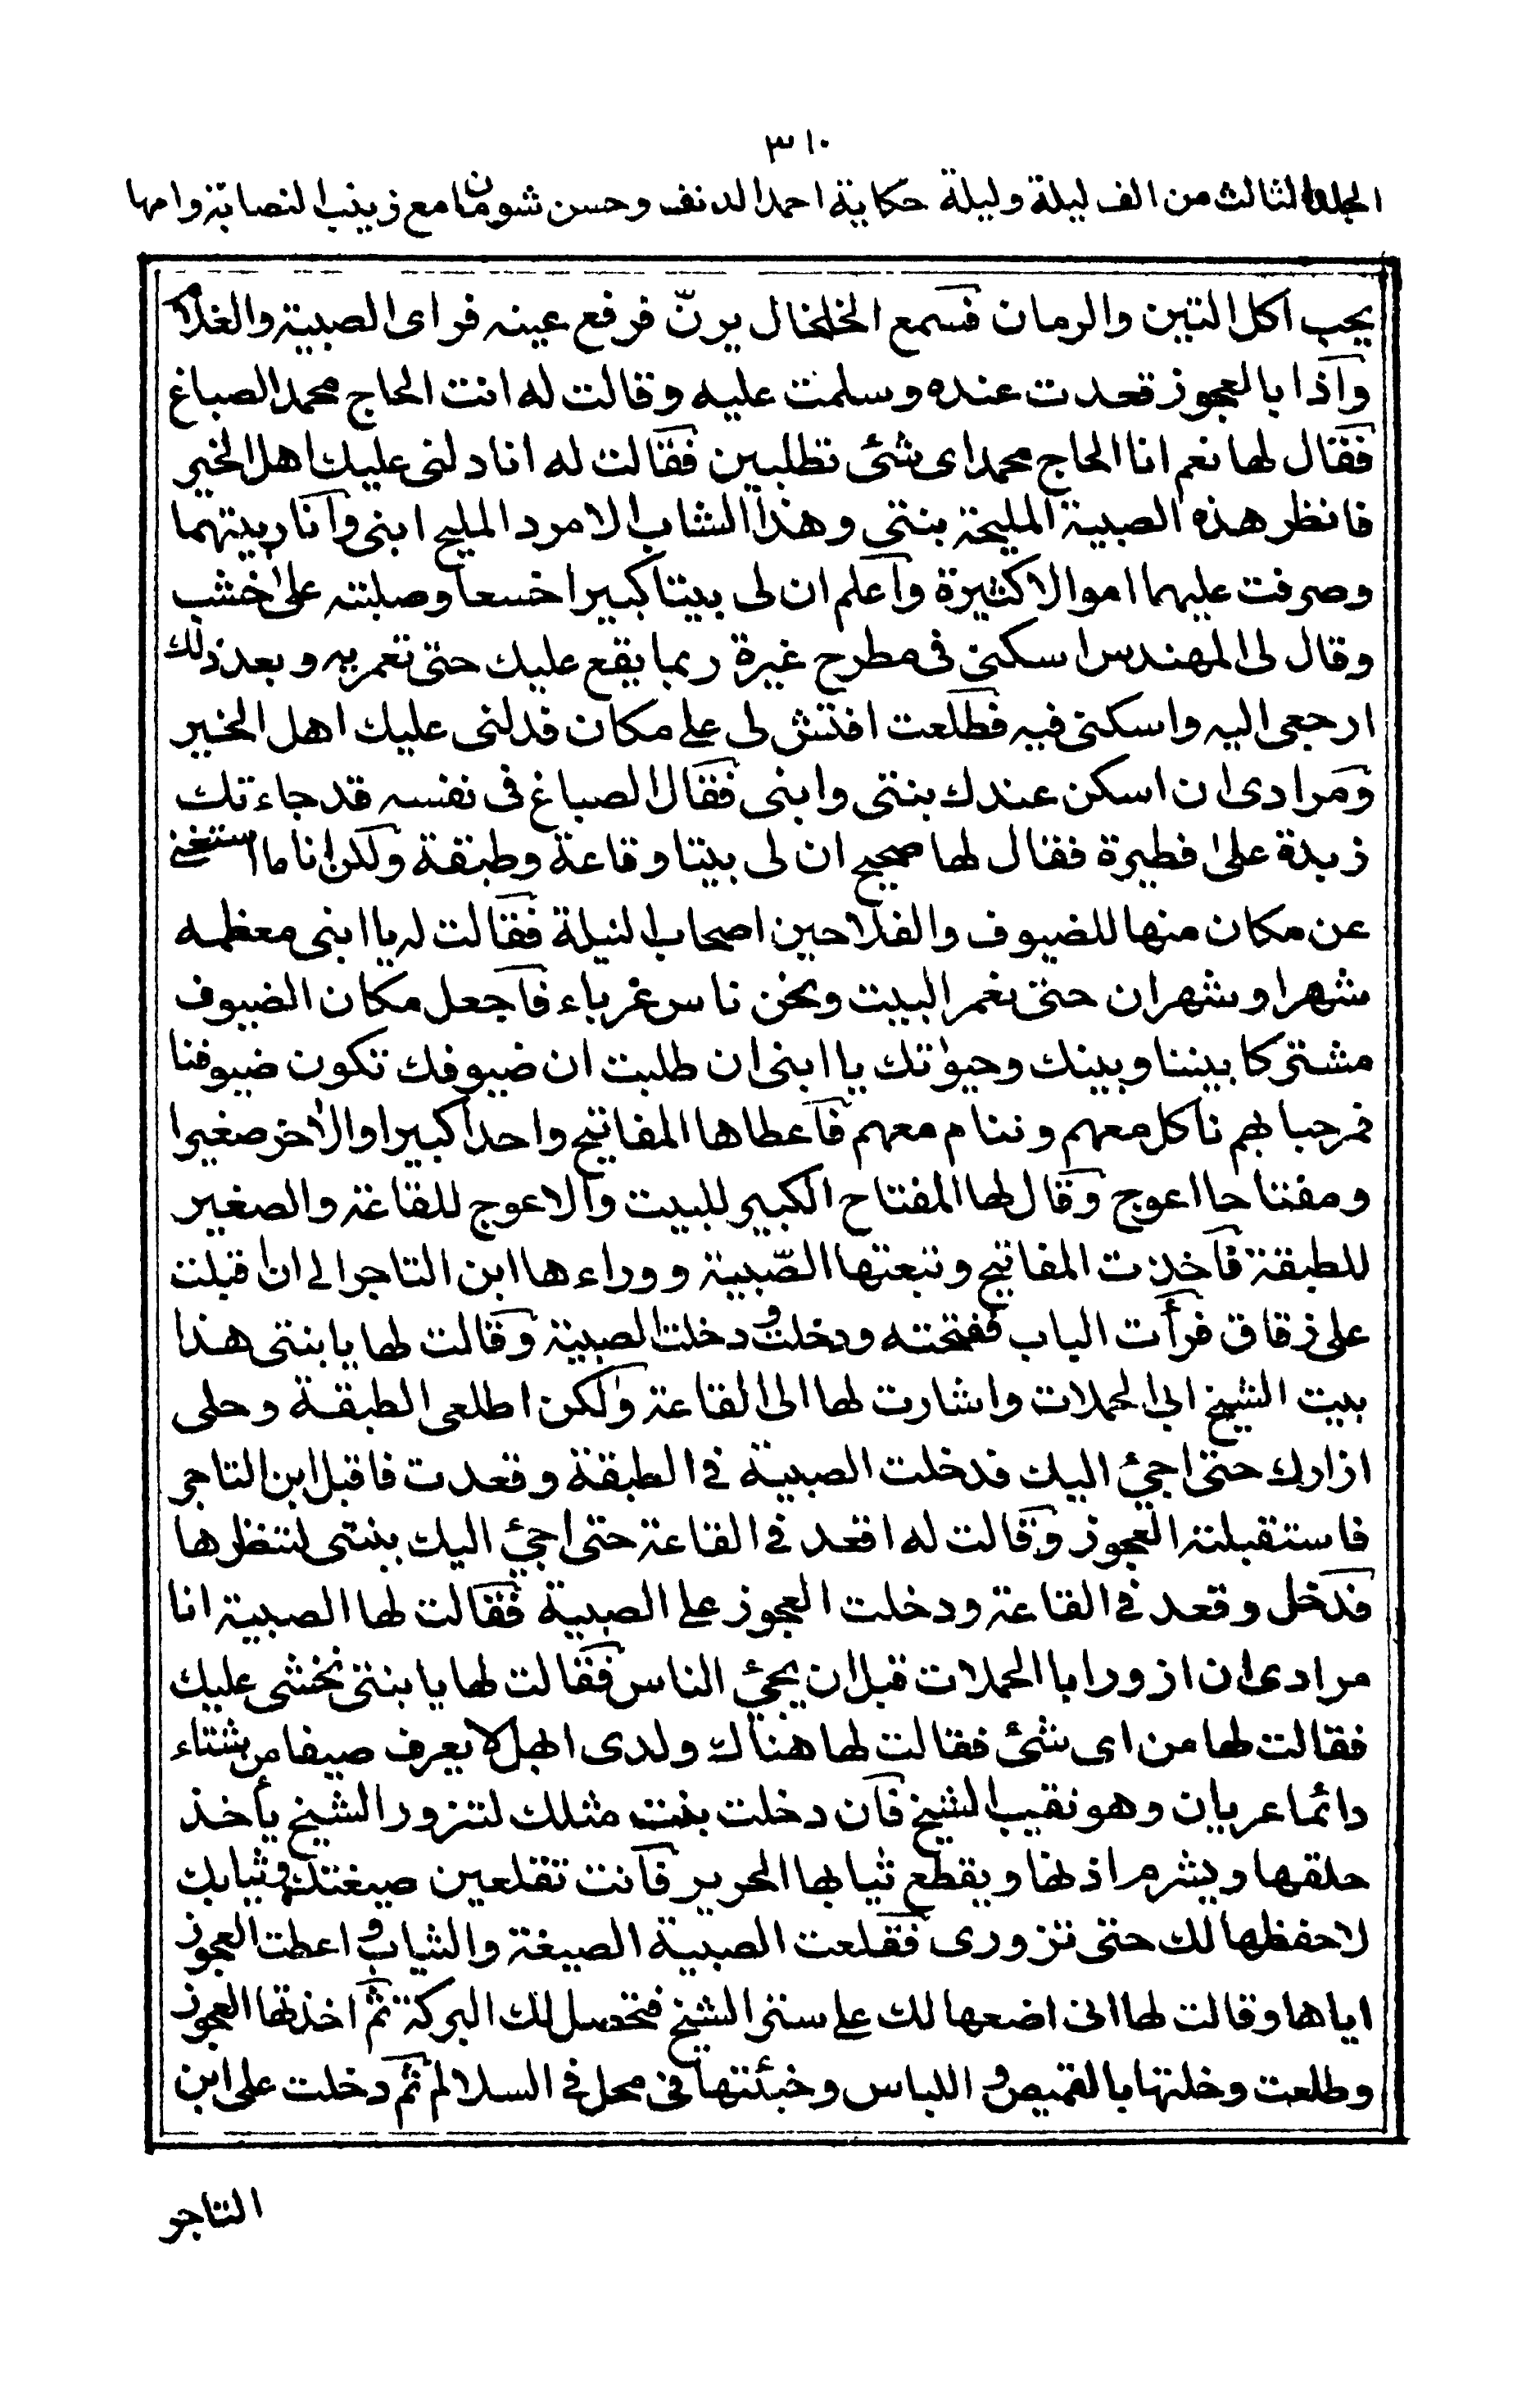 ٣١٠
المجلد الثالث من الف ليلة وليلة حكاية احمد الدنف وحسن شومان مع زينب النصابة وامها
يحب اكل التين والرمان فسمع الخلخال يرنّ فرفع عينه فراى الصبية والغلام
وآذا بالعجوز قعدت عنده وسلمت عليه وقالت له انت الحاج محمد الصباغ
فقال لها نعم انا الحاج محمد اى شئ تطلبين فقالت له انا دلنى عليك اهل الخير
فانظر هذه الصبية المليحة بنتى وهذا الشاب الامرد المليح ابنى وآنا ربيتهما
وصرفت عليهما اموالا كثيرة وآعلم ان لى بيتا كبيرا خسعا وصلبته على خشب
وقال لى المهندس اسكنى فى مطرح غيرة ربما يقع عليك حتى تعمريه وبعد ذلك
ارجعى اليه واسكنى فيه فطلعت افتش لى على مكان فدلنى عليك اهل الخير
ومرادى ان اسكن عندك بنتى وابنى فقال الصباغ فى نفسه قد جاءتك
زبدة على فطيرة فقال لها صحيح ان لى بيتا وقاعة وطبقة ولكن انا ما استغنى
عن مكان منها للضيوف والفلاحين اصحاب النيلة فقالت له يا ابنى معظمه
شهر او شهران حتى نعمر البيت ونحن ناس غرباء فآجعل مكان الضيوف
مشتركا بيننا وبينك وحيوتك يا ابنى ان طلبت ان ضيوفك تكون ضيوفنا
فمرحبا بهم ناكل معهم وننام معهم فآعطاها المفاتيح واحدا كبيرا والاخر صغيرا
ومفتاحا اعوج وقال لها المفتاح الكبير للبيت والاعوج للقاعة والصغير
للطبقة فآخذت المفاتيح وتبعتها الصّبية ووراءها ابن التاجر الى ان اقبلت
على زقاق فرأت الباب ففتحته ودخلت ودخلت الصبية وقالت لها يا بنتى هذا
بيت الشيخ ابى الحملات واشارت لها الى القاعة ولكن اطلعى الطبقة وحلى
ازارك حتى اجئ اليك فدخلت الصبية فى الطبقة وقعدت فاقبل ابن التاجر
فاستقبلته العجوز وقالت له اقعد فى القاعة حتى اجئ اليك ببنتى لتنظرها
فدخل وقعد فى القاعة ودخلت العجوز على الصبية فقالت لها الصبية انا
مرادى ان ازور ابا الحملات قبل ان يجئ الناس فقالت لها يا بنتى نخشى عليك
فقالت لها من اى شئ فقالت لها هناك ولدى اهبل لا يعرف صيفا من شتاء
دائما عريان وهو نقيب الشيخ فآن دخلت بنت مثلك لتزور الشيخ يأخذ
حلقها ويشرم اذنها ويقطع ثيابها الحرير فآنت تقلعين صيغتك وثيابك
لاحفظها لك حتى تزورى فقلعت الصبية الصيغة والثياب واعطت العجوز
اياها وقالت لها انى اضعها لك على ستر الشيخ فتحصل لك البركة ثم اخذتها العجوز
وطلعت وخلتها بالقميص و اللباس وخبئتها فى محل فى السلالم ثم دخلت على ابن
التاجر